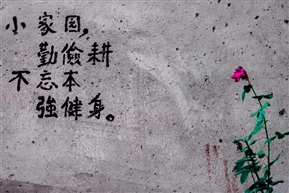 小家园，
勤儉耕
不忘本
強健身。